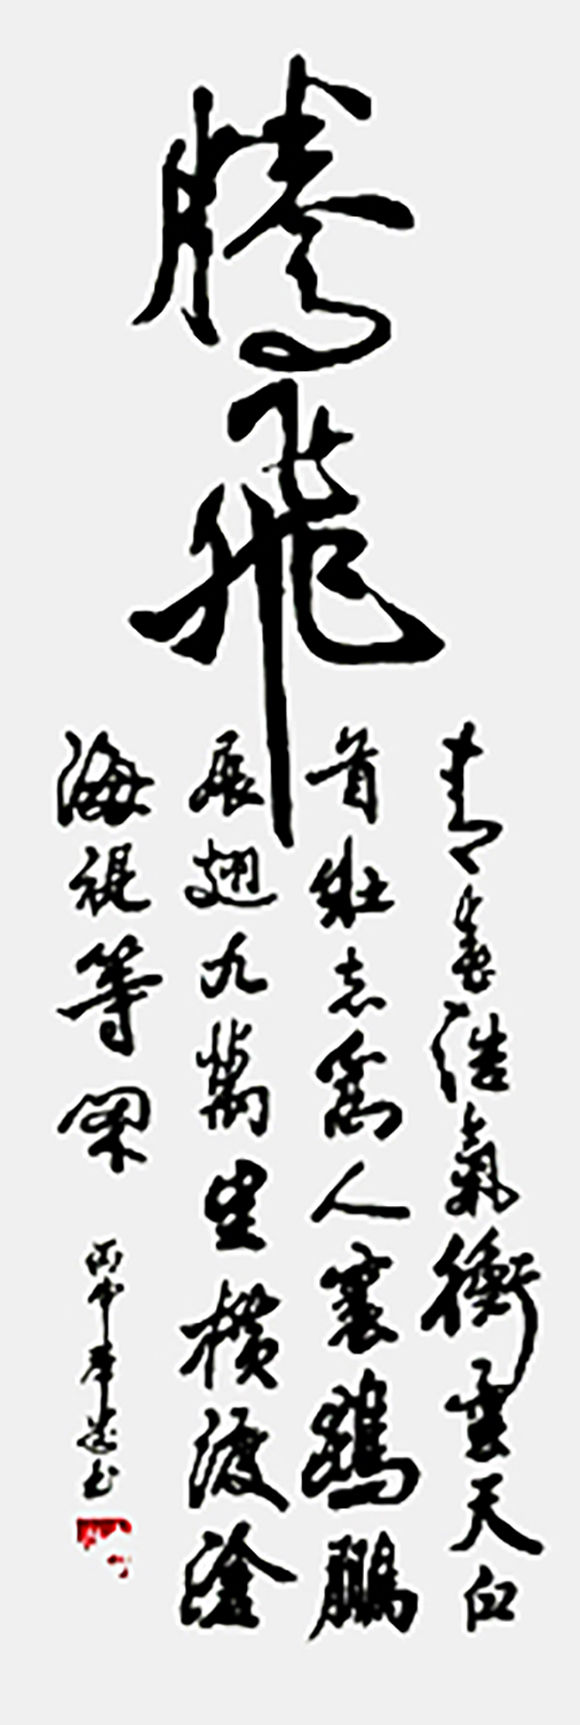 腾飛
青春浩氣衝雲天白
首壯志寫人寰鵾鵬
展翅九萬里橫渡滄
海視等閑
丙申
書